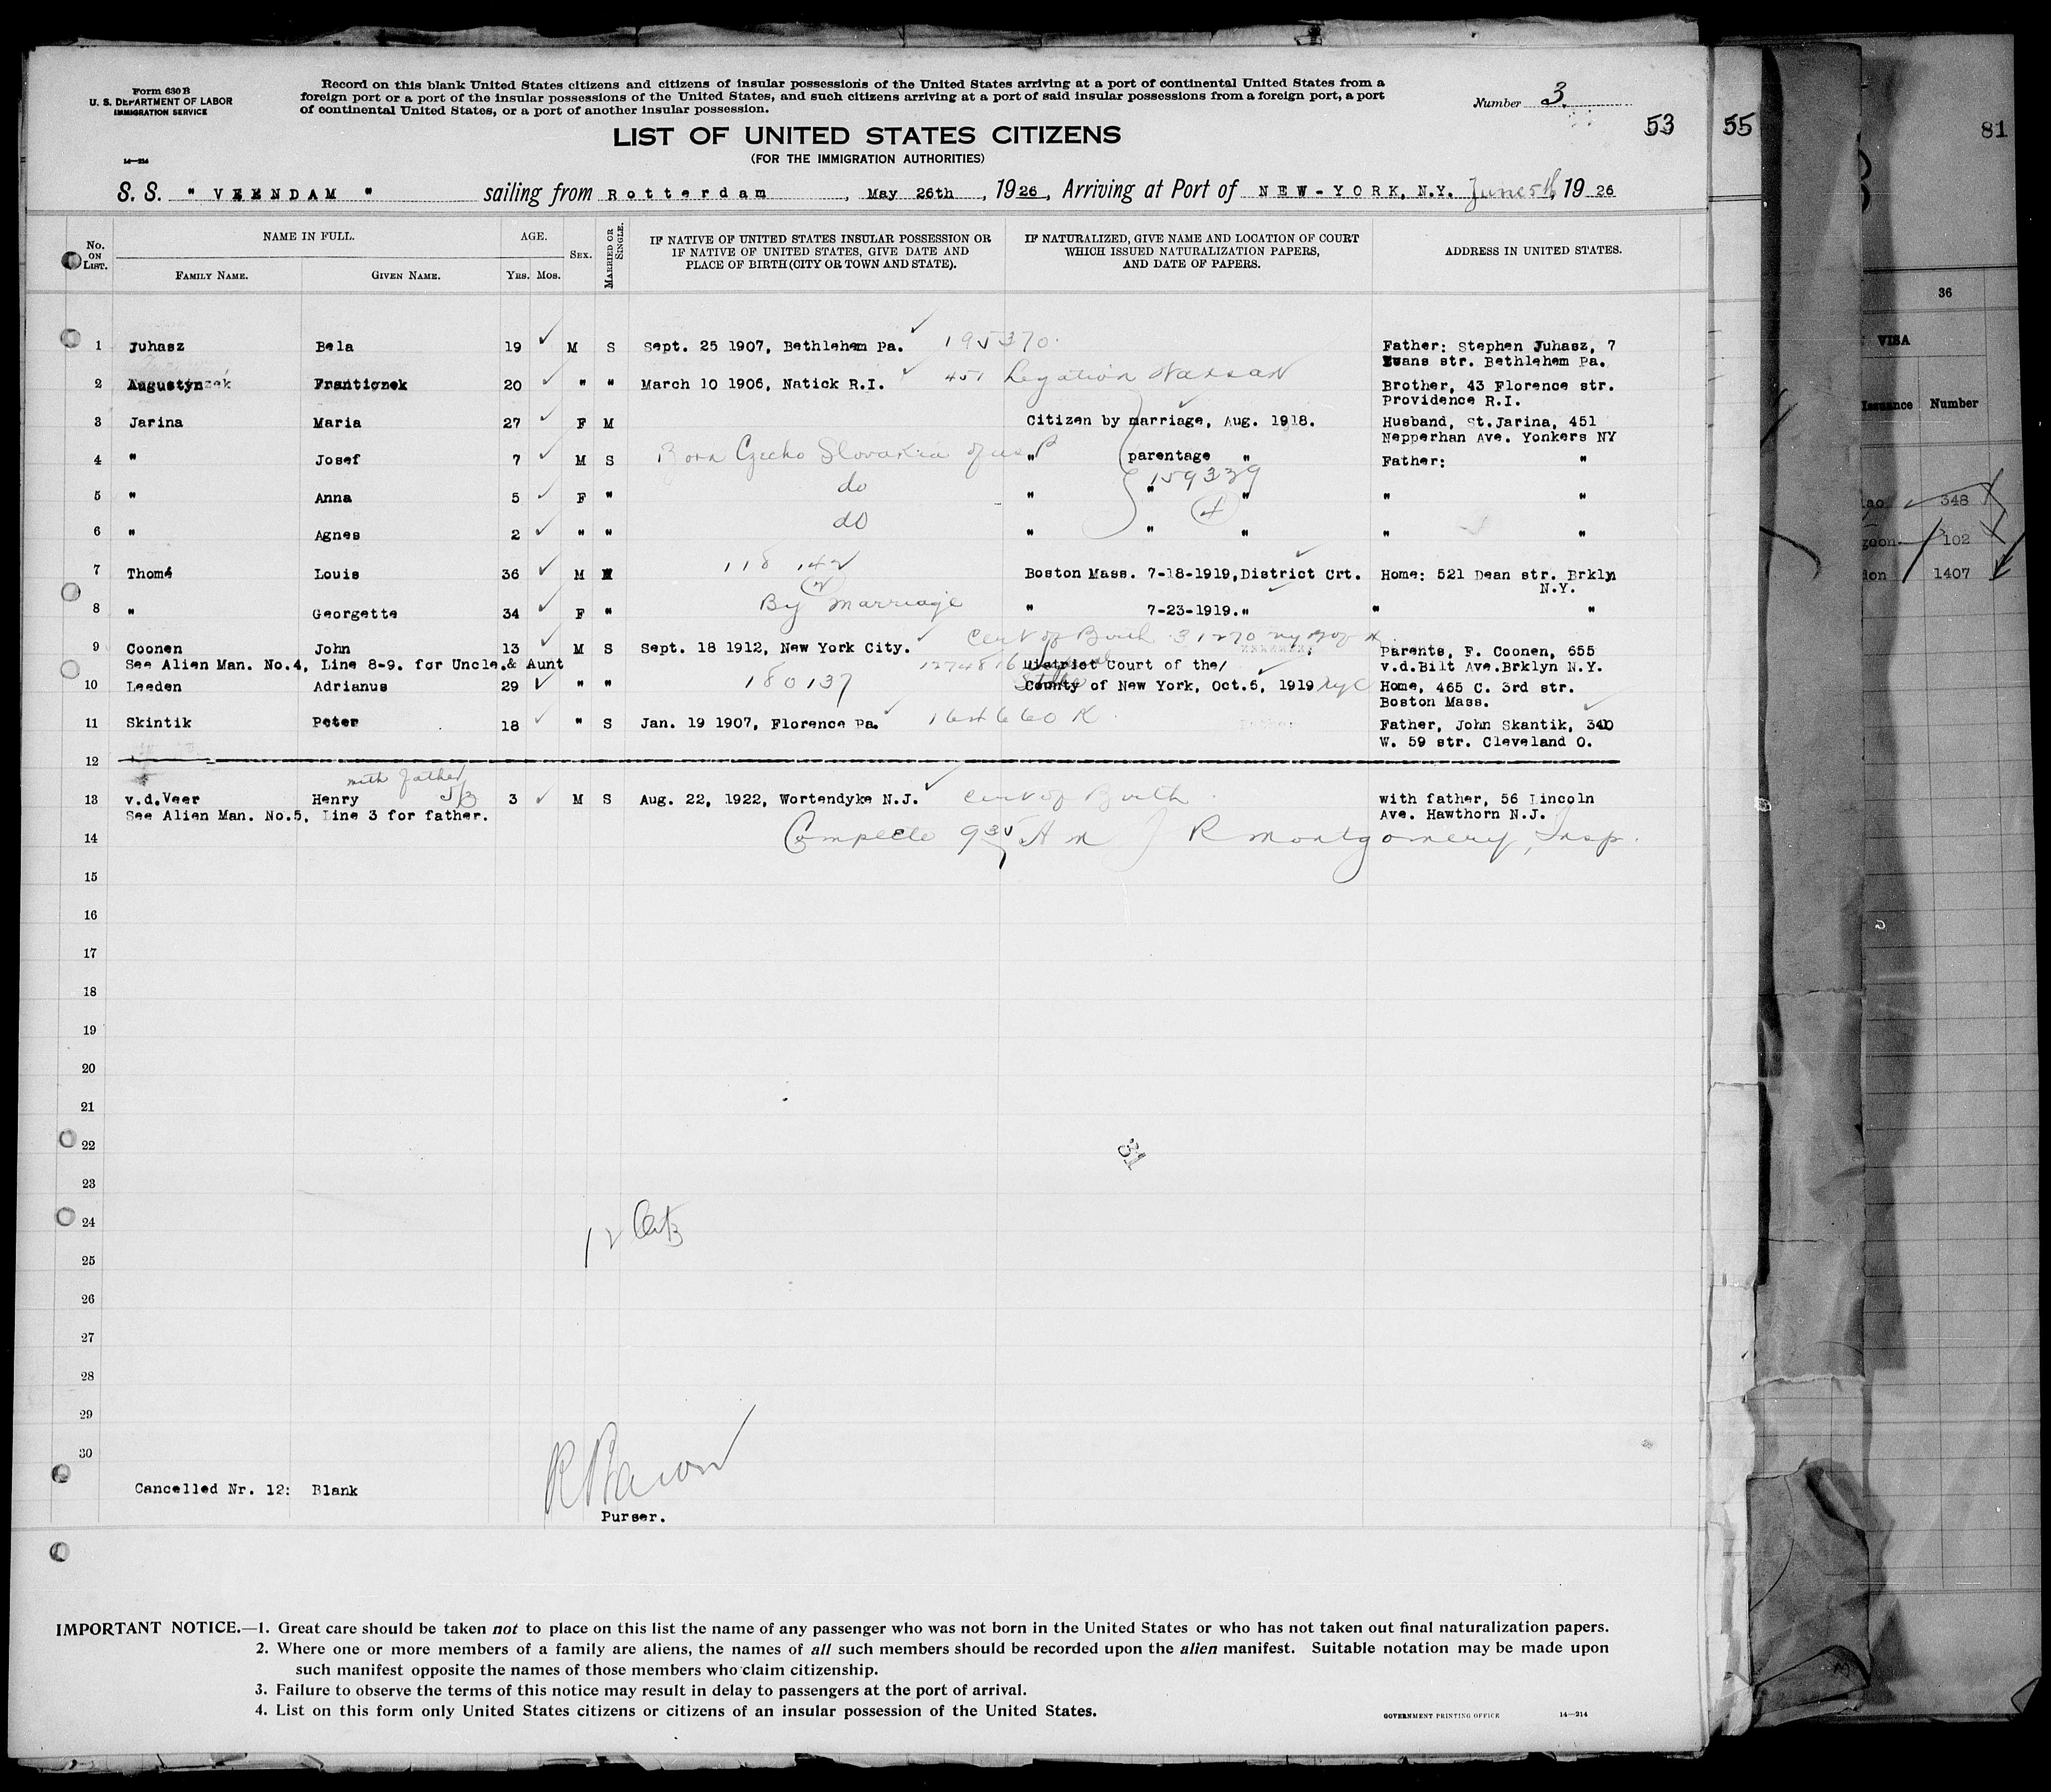 Form 630 B
U. S. DEPARTMENT OF LABOR
IMMIGRATION SERVICE
14—214
Record on this blank United States citizens and citizens of insular possessions of the United States arriving at a port of continental United States from a
foreign port or a port of the insular possessions of the United States, and such citizens arriving at a port of said insular possessions from a foreign port, a port
of continental United States, or a port of another insular possession.
Number 3.
53
55
81
LIST OF UNITED STATES CITIZENS
(FOR THE IMMIGRATION AUTHORITIES)
S. S. " VEENDAM " sailing from Rotterdam, May 26th, 1926, Arriving at Port of NEW-YORK, N.Y. June 5th, 1926
No. ON LIST. NAME IN FULL. AGE. SEX. MARRIED OR SINGLE. IF NATIVE OF UNITED STATES INSULAR POSSESSION OR IF NATIVE OF UNITED STATES, GIVE DATE AND PLACE OF BIRTH (CITY OR TOWN AND STATE). IF NATURALIZED, GIVE NAME AND LOCATION OF COURT WHICH ISSUED NATURALIZATION PAPERS, AND DATE OF PAPERS. ADDRESS IN UNITED STATES.
FAMILY NAME. GIVEN NAME. YRS. MOS.
1 Juhasz Bela 19 M S Sept. 25 1907, Bethlehem Pa. 195370. Father: Stephen Juhasz, 7
Evans str. Bethlehem Pa.
2 Augustynzek Frantionek 20 " " March 10 1906, Natick R.I. 451 Legation Warsaw Brother, 43 Florence str.
Providence R.I.
3 Jarina Maria 27 F M Citizen by marriage, Aug. 1918. Husband, St.Jarina, 451
Nepperhan Ave. Yonkers NY
4 " Josef 7 M S Born Czecho Slovakia " parentage " Father: "
5 " Anna 5 F " do " " " " "
159339
6 " Agnes 2 " " do " " " " "
4
7 Thomé Louis 36 M M 118 142 Boston Mass. 7-18-1919, District Crt. Home: 521 Dean str. Brklyn
N.Y.
8 " Georgette 34 F " By marriage " 7-23-1919. " " "
9 Coonen John 13 M S Sept. 18 1912, New York City. Cert of Birth 31270 Parents, F. Coonen, 655
See Alien Man. No.4, Line 8-9. for Uncle.& Aunt 1274816 District Court of the/ v.d.Bilt Ave.Brklyn N.Y.
10 Leeden Adrianus 29 " " 180137 County of New York, Oct.5, 1919 NYC Home, 465 C. 3rd str.
Boston Mass.
11 Skintik Peter 18 " S Jan. 19 1907, Florence Pa. Father, John Skantik, 340
W. 59 str. Cleveland O.
12
with father
13 v.d.Veer Henry 5/3 3 M S Aug. 22, 1922, Wortendyke N.J. Cert of Birth with father, 56 Lincoln
See Alien Man. No.5, Line 3 for father. Ave. Hawthorn N.J.
14 Complete 9 35 AM J R Montgomery, Insp.
15
16
17
18
19
20
21
22
31
23
24
25
26
27
28
29
30
Cancelled Nr. 12: Blank
Purser.
IMPORTANT NOTICE.—1. Great care should be taken not to place on this list the name of any passenger who was not born in the United States or who has not taken out final naturalization papers.
2. Where one or more members of a family are aliens, the names of all such members should be recorded upon the alien manifest. Suitable notation may be made upon
such manifest opposite the names of those members who claim citizenship.
3. Failure to observe the terms of this notice may result in delay to passengers at the port of arrival.
4. List on this form only United States citizens or citizens of an insular possession of the United States.
GOVERNMENT PRINTING OFFICE 14—214
36
VISA
Issuance Number
348
102
1407